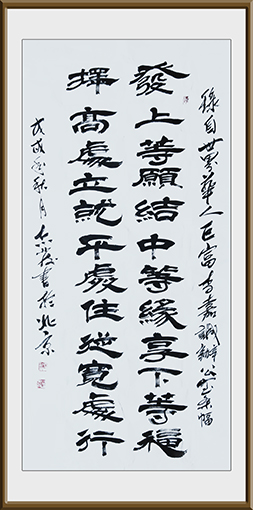 錄自世界華人巨富李嘉誠辦公室条幅
發上等願結中等緣享下等福
擇高處立就平處住從寬處行
戊戌年秋月志發書於北京